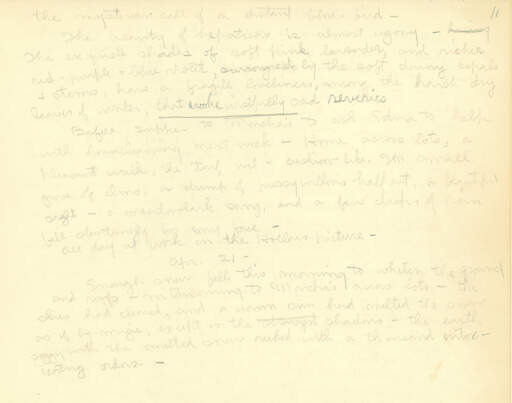 the mysterious call of a distant blue bird –
11
The beauty of hepaticas is almost agony –
The exquisite shades of soft pink, lavender, and richer
red-purple & blue violet, surrounded by the soft downy sepals
& stems, have a fragile loveliness, among the harsh dry
leaves of winter, that evoke wistfully sad reveries
Before supper to Martha's to ask Edna to help
with housecleaning next week – Home across lots, a
pleasant walk, the turf wet & cushion like, the small
grove of elms, a clump of pussywillows half out, a beautiful
sight – a meadowlark song, and a few drops of rain
fell slantingly by my face –
all day at work on the picture –
Apr. 21 –
Enough snow fell this morning to whiten the ground
and roofs – on returning to Martha's across lots – the
skies had cleared, and a warm sun had melted the snow
as if by magic, except in the shadows – the earth,
soggy with the melted snow reeked with a thousand intox-
icating odors. –